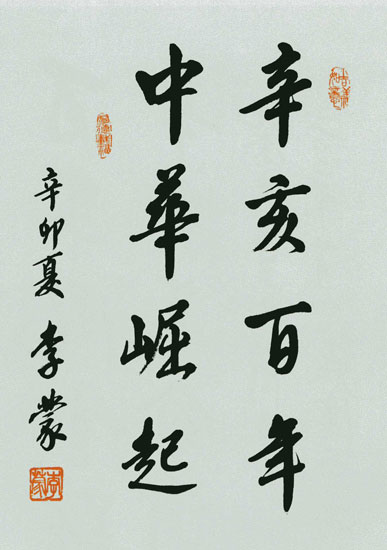 辛亥百年
中華崛起
辛卯夏 李蒙